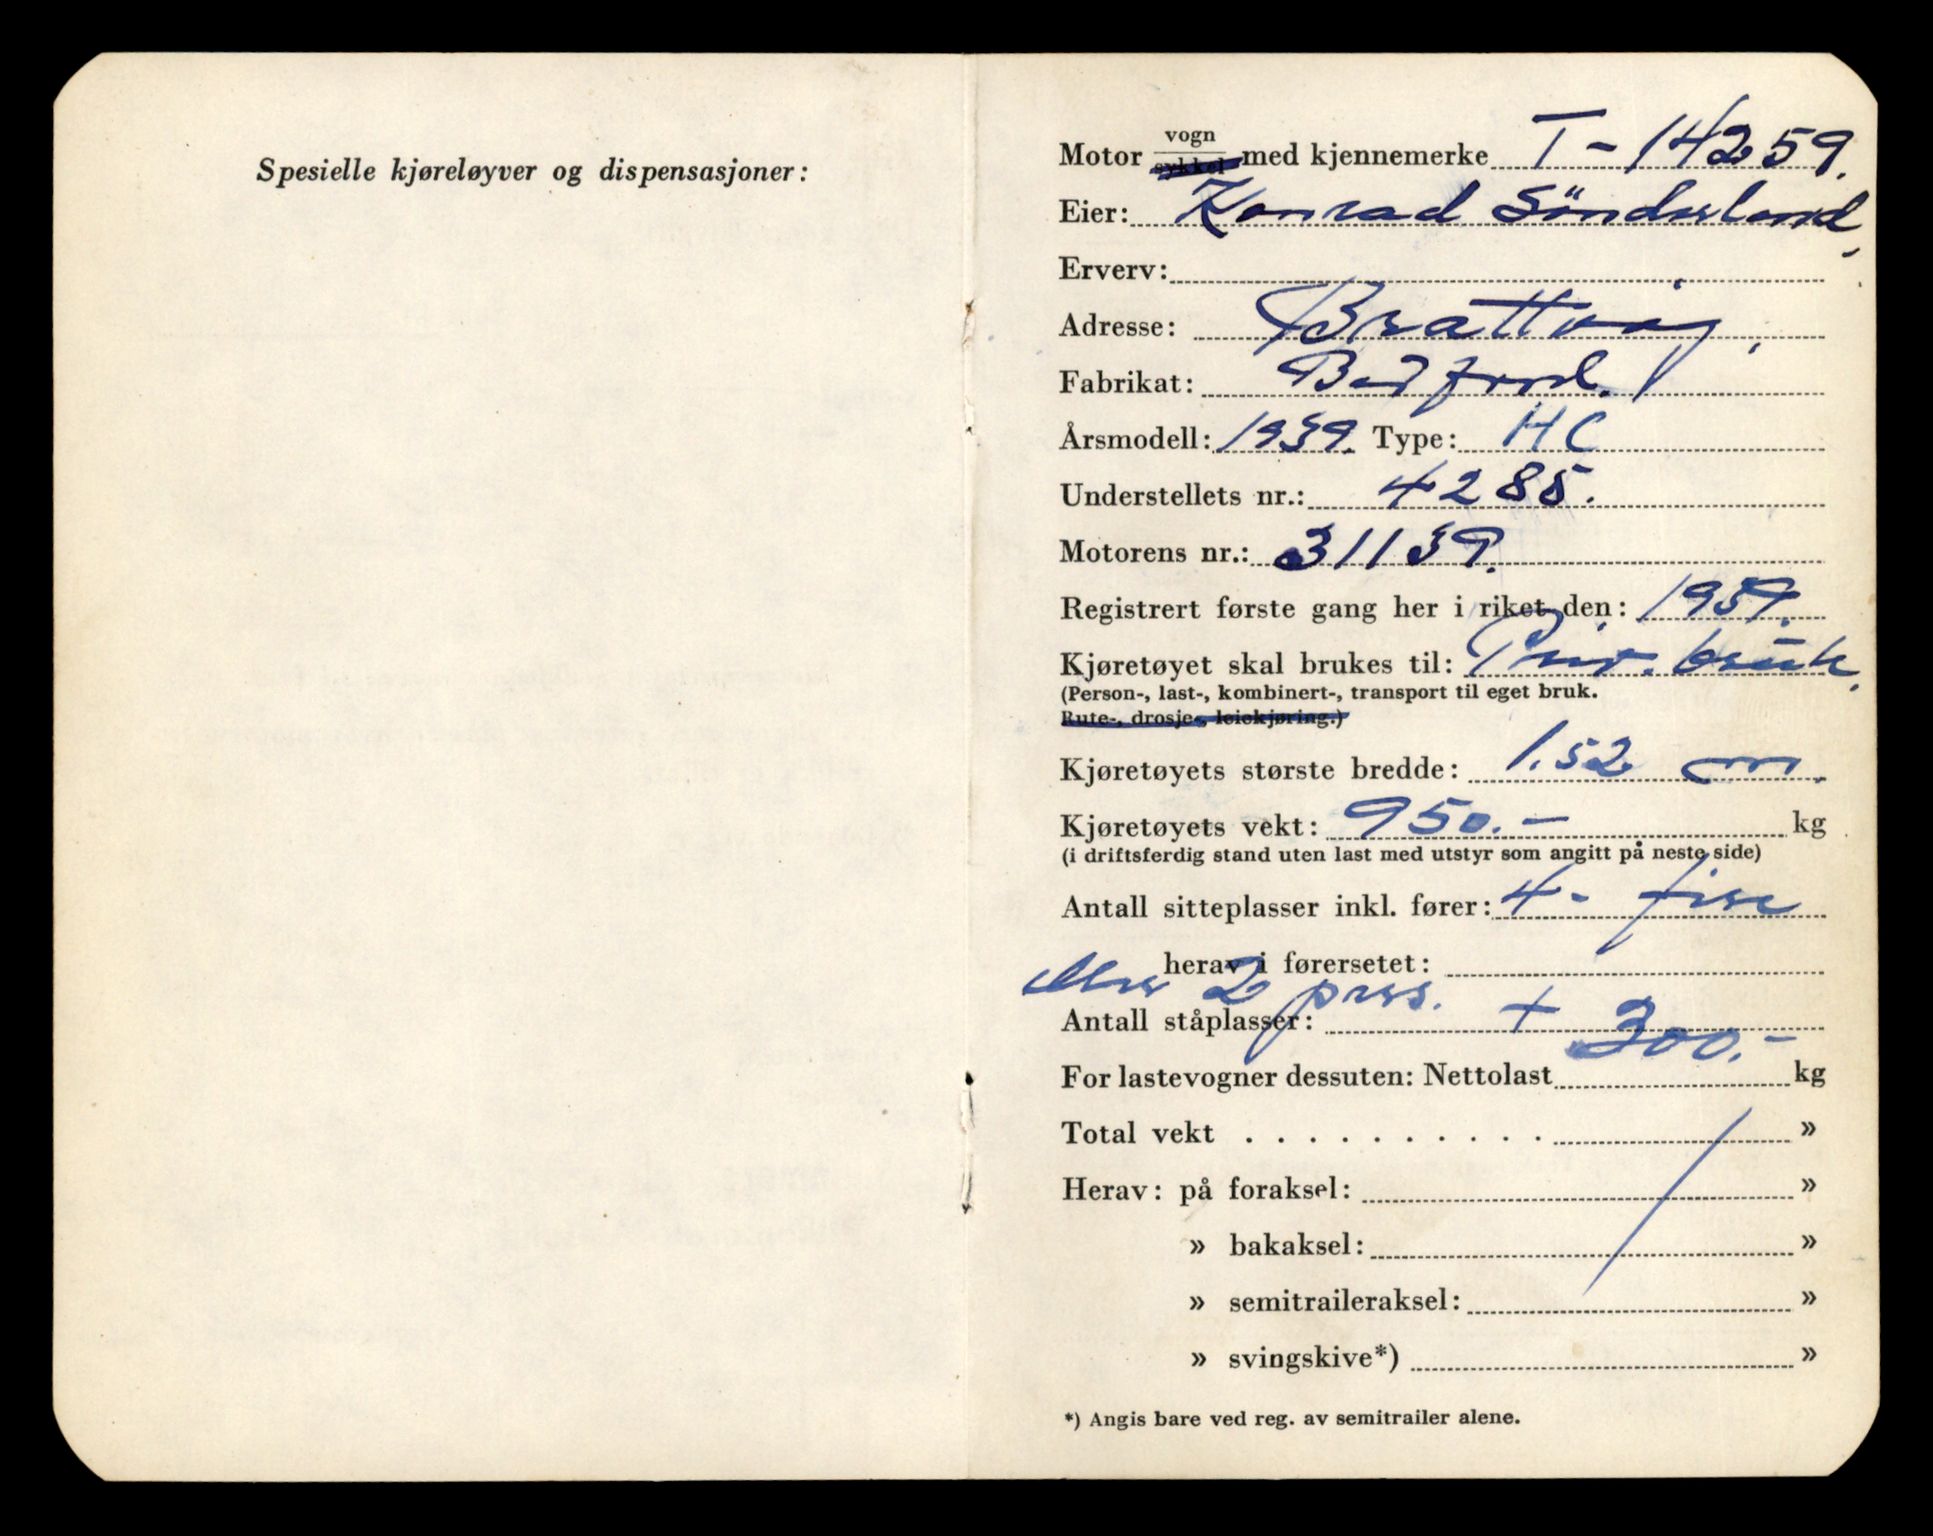 Spesielle kjøreløyver og dispensasjoner:
Motor vogn/sykkel med kjennemerke T-14259.
Eier: Konrad Sönderland,
Erverv:
Adresse: Brattvåg,
Fabrikat: Bedford.
Årsmodell: 1939. Type: HC
Understellets nr.: 4285.
Motorens nr.: 31139.
Registrert første gang her i riket den: 1959.
Kjøretøyet skal brukes til: Priv. bruk,
(Person-, last-, kombinert-, transport til eget bruk.
Rute-, drosje-, leiekjøring.)
Kjøretøyets største bredde: 1.52 m.
Kjøretøyets vekt: 950.- kg
(i driftsferdig stand uten last med utstyr som angitt på neste side)
Antall sitteplasser inkl. fører: 4- fire
herav i førersetet:
eller 2 pers. + 300.-
Antall ståplasser:
For lastevogner dessuten: Nettolast kg
Total vekt . . . . . . . . . . »
Herav: på foraksel: »
» bakaksel: »
» semitraileraksel: »
» svingskive*) »
*) Angis bare ved reg. av semitrailer alene.